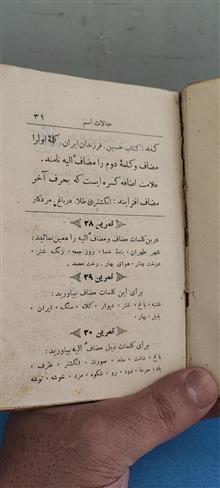 حالات اسم ۳۱
کنند: کتاب حسین. فرزندان ایران، کلمهٔ اول را
مضاف و کلمهٔ دوم را مضاف‌ٌ الیه نامند.
علامت اضافه کسره ایست که بحرف آخر
مضاف افزایند: انگشتریِ طلا. درِ باغ. مردِ کار
تمرین ۲۸
در این کلمات مضاف و مضاف‌ٌ الیه را معین نمائید:
شهر طهران، بندهٔ خدا، روز جمعه، زنگ شتر،
درخت چنار، هوای بهار، رخت محمد.
تمرین ۲۹
برای این کلمات مضاف بیاورید:
شنبه، باغ، شتر، دیوار، کلاه، سنگ، ایران،
بلبل، بهار.
تمرین ۳۰
برای کلمات ذیل مضاف‌ٌ الیه بیاورید:
باغ، دشت، جلد، صورت، انگشتر، ظرف،
خرما، دود، رو، شکوه، مزد، خوشه، توشه